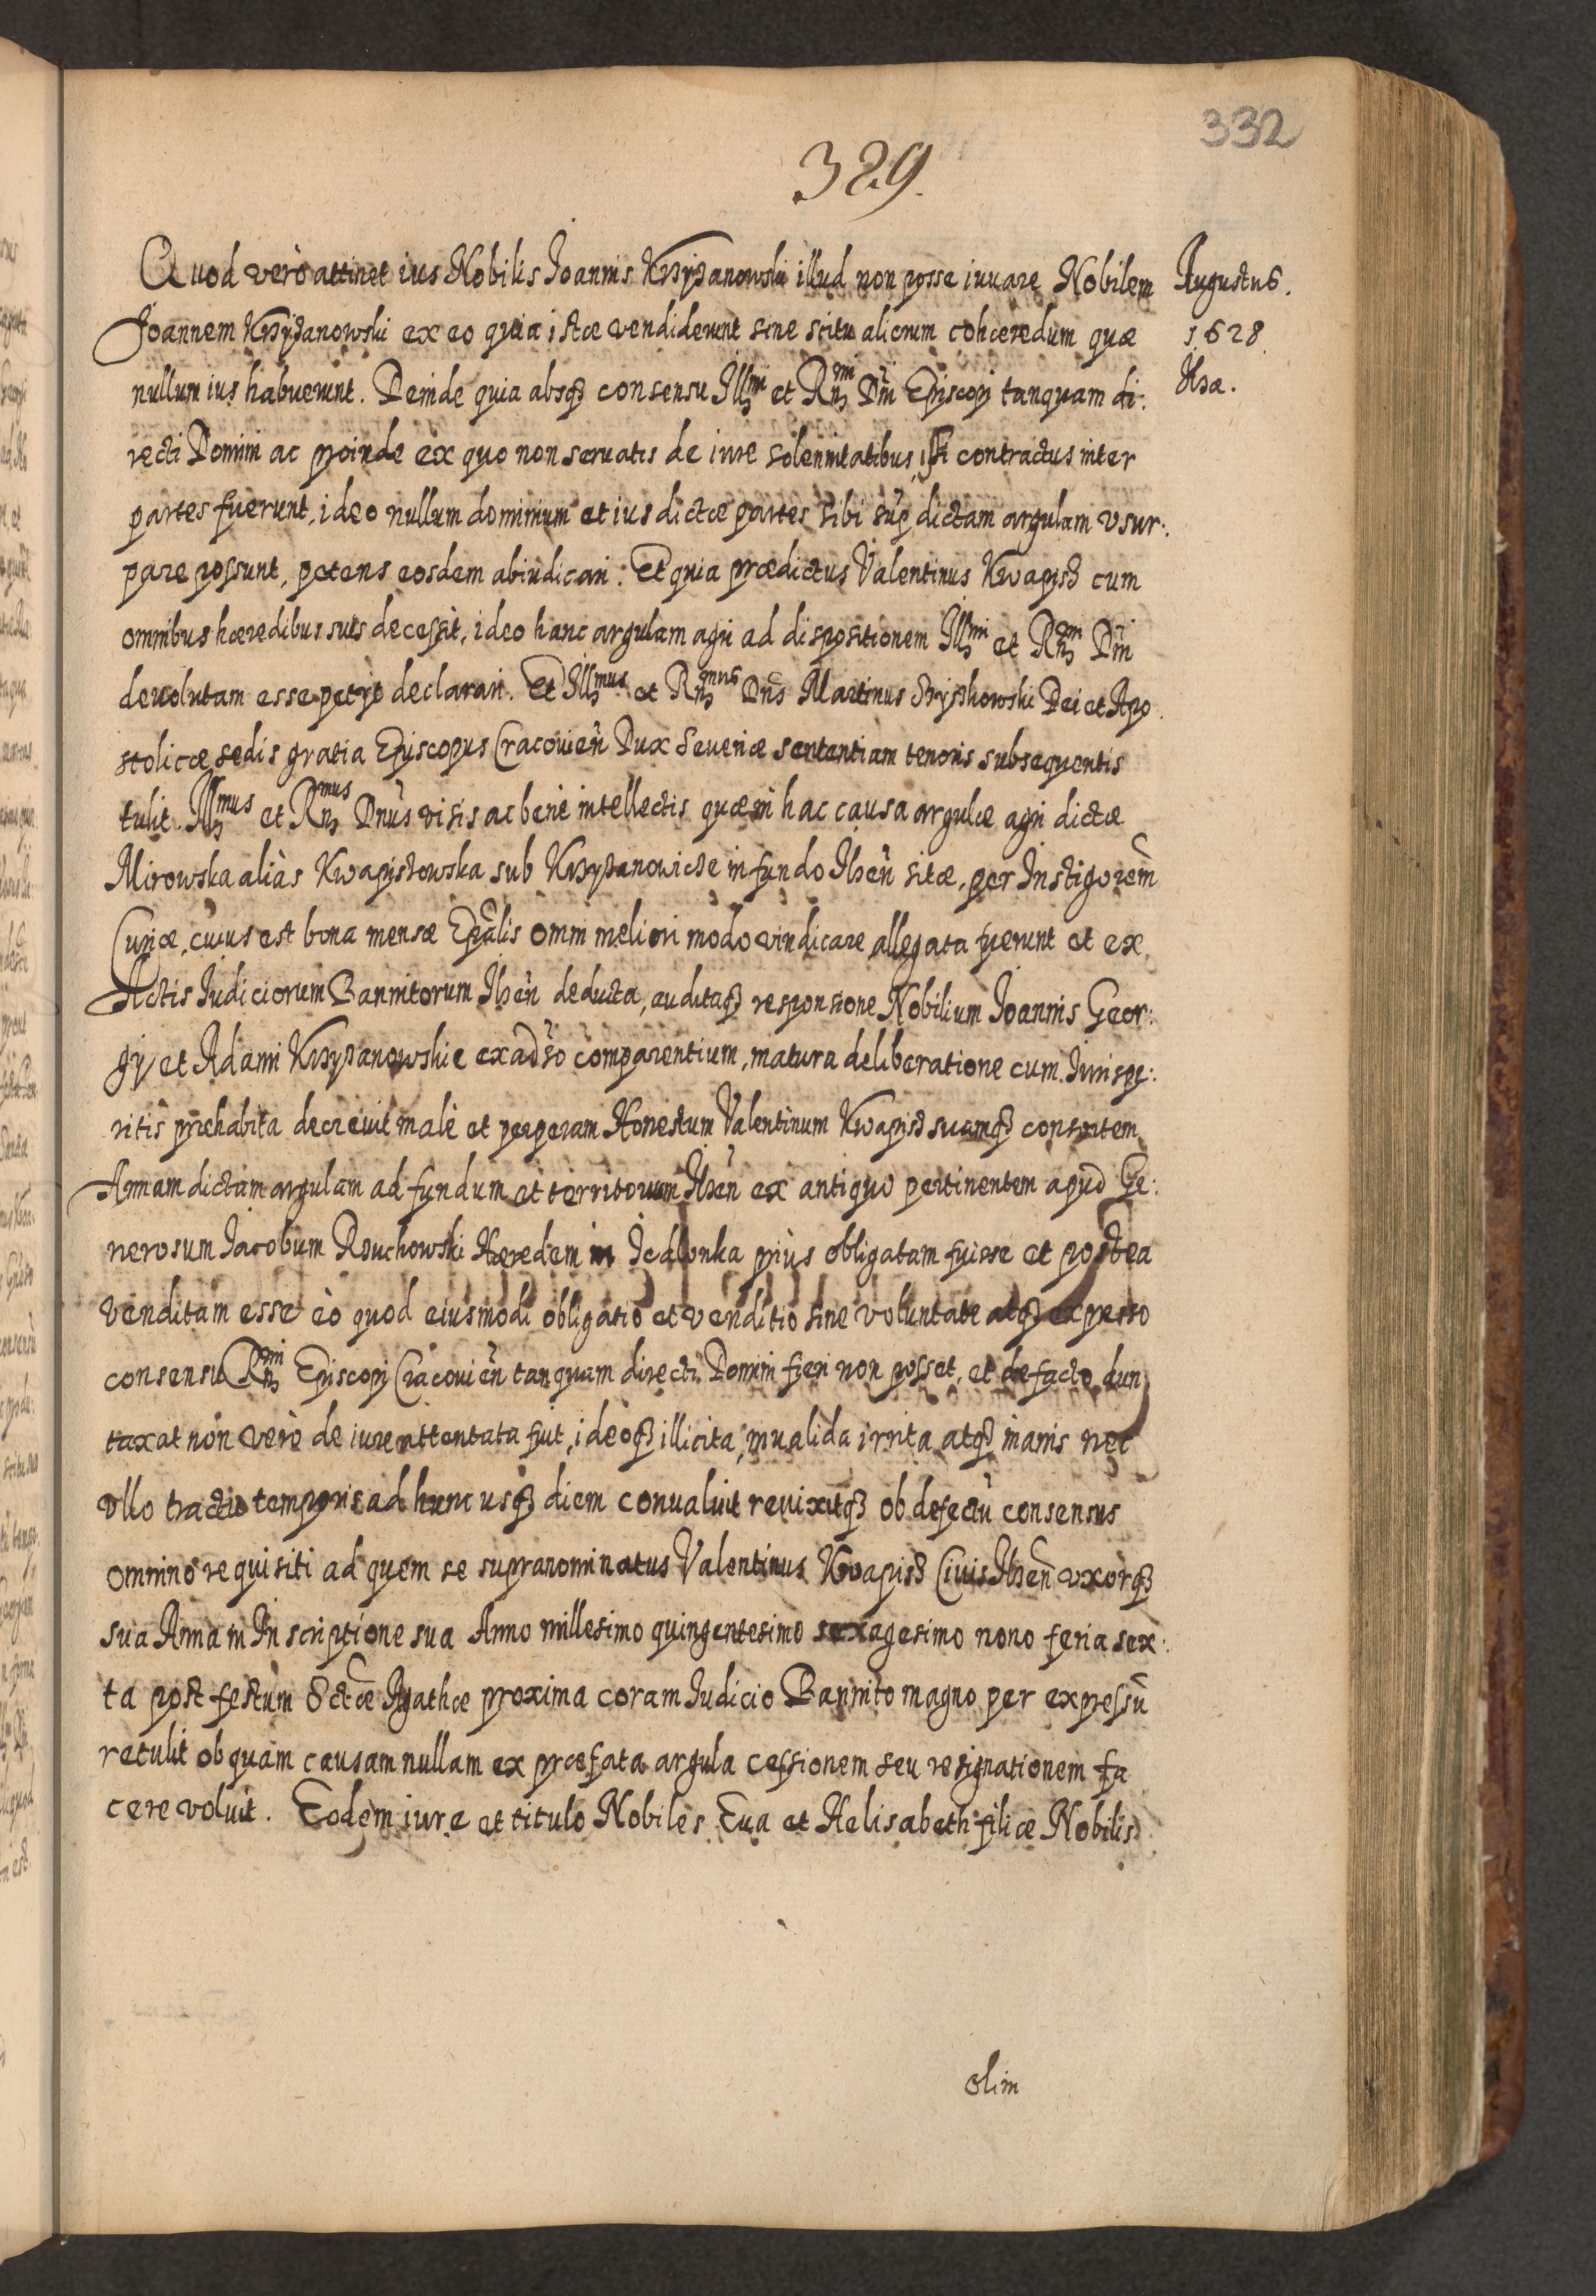 332
329.
Quod verò attinet ius Nobilis Joannis Krzyżanowski illud non posse iuuare Nobilem
Joannem Krzyżanowski ex eo quia istæ vendiderunt sine scitu aliorum cohæredum quæ
nullum ius habuerunt. Deinde quia absq3 consensu Illmi et Rmi Dni Episcopi tanquam di:
recti Domini ac proinde ex quo non seruatis de iure solennitatibus, isti contractus inter
partes fuerunt, ideo nullum dominium et ius dictæ partes sibi sup dictam argulam vsur:
pare possunt, petens eosdem abiudicari. Et quia prædictus Valentinus Kwapisz cum
omnibus hæredibus suis decessit, ideo hanc argulam agri ad dispositionem Illmi et Rmi Dni
deuolutam esse petijt declarari. Et Illmus et Rmus Dns Martinus Szyszkowski Dei et Apo
stolicæ sedis gratia Episcopus Cracouien Dux Seueriæ sententiam tenoris subsequentis
tulit. Illmus et Rmus Dnus visis ac benè intellectis quæ in hac causa argulæ agri dictæ
Mirowska aliàs Kwapiszowska sub Krzyżanowicze in fundo Ilzen sitæ, per Instigorem
Curiæ, cuius est bona mensæ Epalis omni meliori modo vindicare allegata fuerunt et ex
Actis Iudiciorum Bannitorum Ilzen deducta, auditaq3 responsione Nobilium Joannis Geor:
gij et Adami Krzyżanowskie exaduso comparentium, matura deliberatione cum Iurispe:
ritis præhabita decreuit malè et perperam Honestum Valentinum Kwapisz suamq3 consortem
Annam dictam argulam ad fundum et territorium Ilzen ex antiquo pertinentem apud Ge:
nerosum Jacobum Rouchowski Hæredem in Jedlonka priùs obligatam fuisse et postea
venditam esse èo quod eiusmodi obligatio et venditio sine voluntate atq3 expresso
consensu Rmi Episcopi Cracouien tanquam directi Domini fieri non posset, et de facto dun
taxat non verò de iure attentata fuit, ideoq3 illicita, inualida irrita atq3 inanis nec
vllo tractu temporis ad hunc usq3 diem conualuit reuixitq3 ob defectu consensus
omnino requisiti ad quem se supranominatus Valentinus Kwapisz Ciuis Ilzen vxorq3
sua Anna in Inscriptione sua Anno millesimo quingentesimo sexagesimo nono feria sex:
ta post festum Sctæ Agathæ proxima coram Iudicio Bannito magno per expressu
retulit ob quam causam nullam ex præfata argula cessionem seu resignationem fa
cere voluit. Eodem iure et titulo Nobiles Eua et Helisabeth filiæ Nobilis
olim
Augustus.
1628.
Ilza.